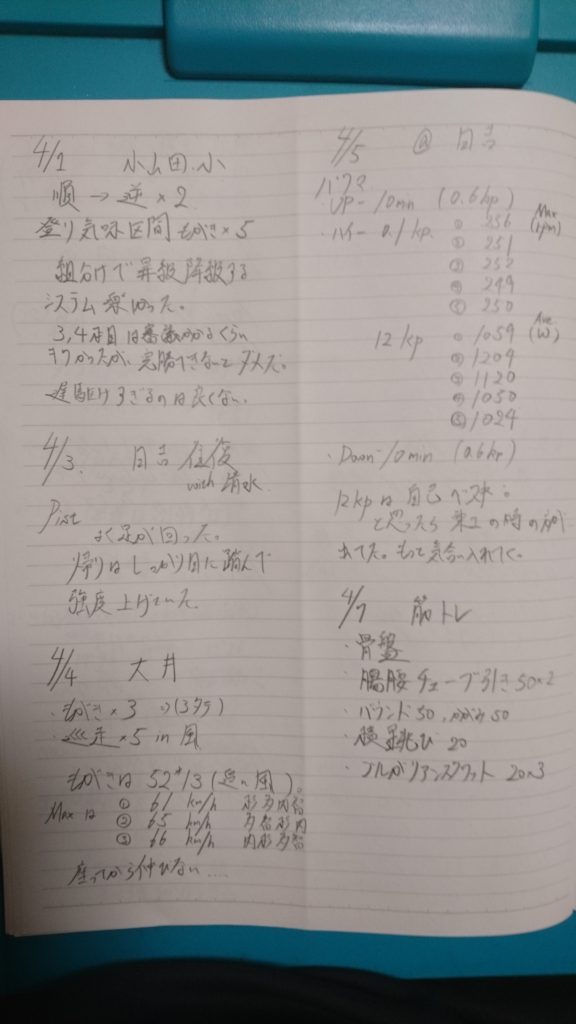 4/1 小山田.小
順→逆×2
登り気味区間もがき×5
組分けで昇級降級する
システム楽しかった。
3,4本目は番数わかるくらい
キツかったが、完勝できないとダメだ。
遅駆けすぎるのは良くない。
4/3. 日吉往復
with 清水
Pist
よく足が回った。
帰りはしっかり目に踏んで
強度上げていた。
4/4 大井
・もがき×3 →(3タテ)
・巡走×5 in 風
もがきは 52*13 (追い風)。
Maxは ① 61 km/h
② 65 km/h
③ 66 km/h
座ってから伸びない....
4/5 @ 日吉
パワマ
・UP 10min (0.6kp)
・ハイ 0.1kp. ① 256 Max (rpm)
② 251
③ 252
④ 249
⑤ 250
12kp ① 1059 Ave (W)
② 1204
③ 1120
④ 1050
⑤ 1024
・Down 10min (0.6kp)
12kpは自己ベスト。
と思ったら の時の方が
出てた。もっと気合い入れてく。
4/7 筋トレ
・骨盤
・腸腰チューブ引き 50×2
・バウンド50, 50
・横跳び 20
・ブルガリアンスクワット 20×3